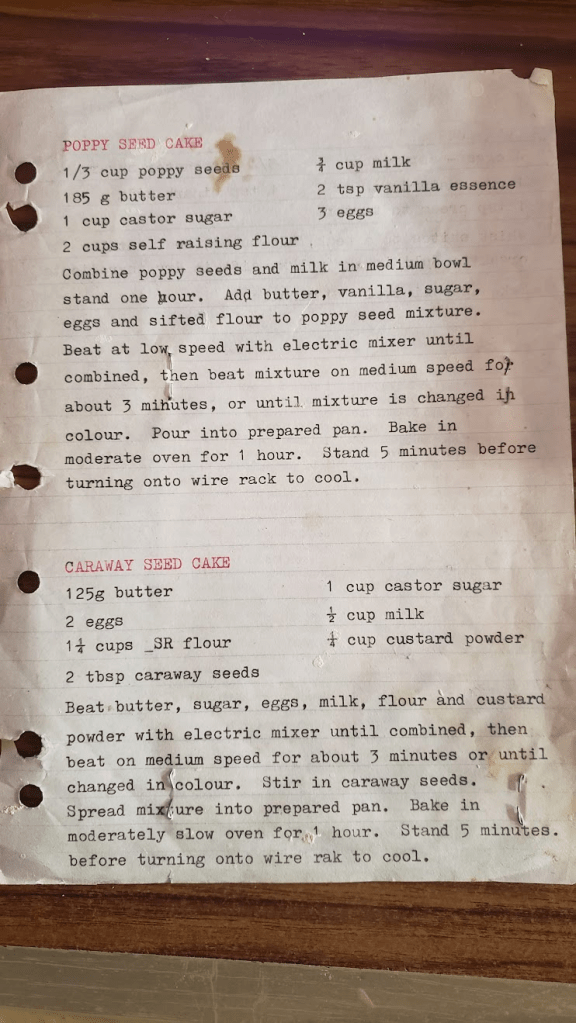 POPPY SEED CAKE
1/3 cup poppy seeds ¾ cup milk
185 g butter 2 tsp vanilla essence
1 cup castor sugar 3 eggs
2 cups self raising flour
Combine poppy seeds and milk in medium bowl
stand one hour. Add butter, vanilla, sugar,
eggs and sifted flour to poppy seed mixture.
Beat at low speed with electric mixer until
combined, then beat mixture on medium speed for
about 3 minutes, or until mixture is changed in
colour. Pour into prepared pan. Bake in
moderate oven for 1 hour. Stand 5 minutes before
turning onto wire rack to cool.
CARAWAY SEED CAKE
125g butter 1 cup castor sugar
2 eggs ½ cup milk
1¼ cups _SR flour ¼ cup custard powder
2 tbsp caraway seeds
Beat butter, sugar, eggs, milk, flour and custard
powder with electric mixer until combined, then
beat on medium speed for about 3 minutes or until
changed in colour. Stir in caraway seeds.
Spread mixture into prepared pan. Bake in
moderately slow oven for 1 hour. Stand 5 minutes.
before turning onto wire rak to cool.